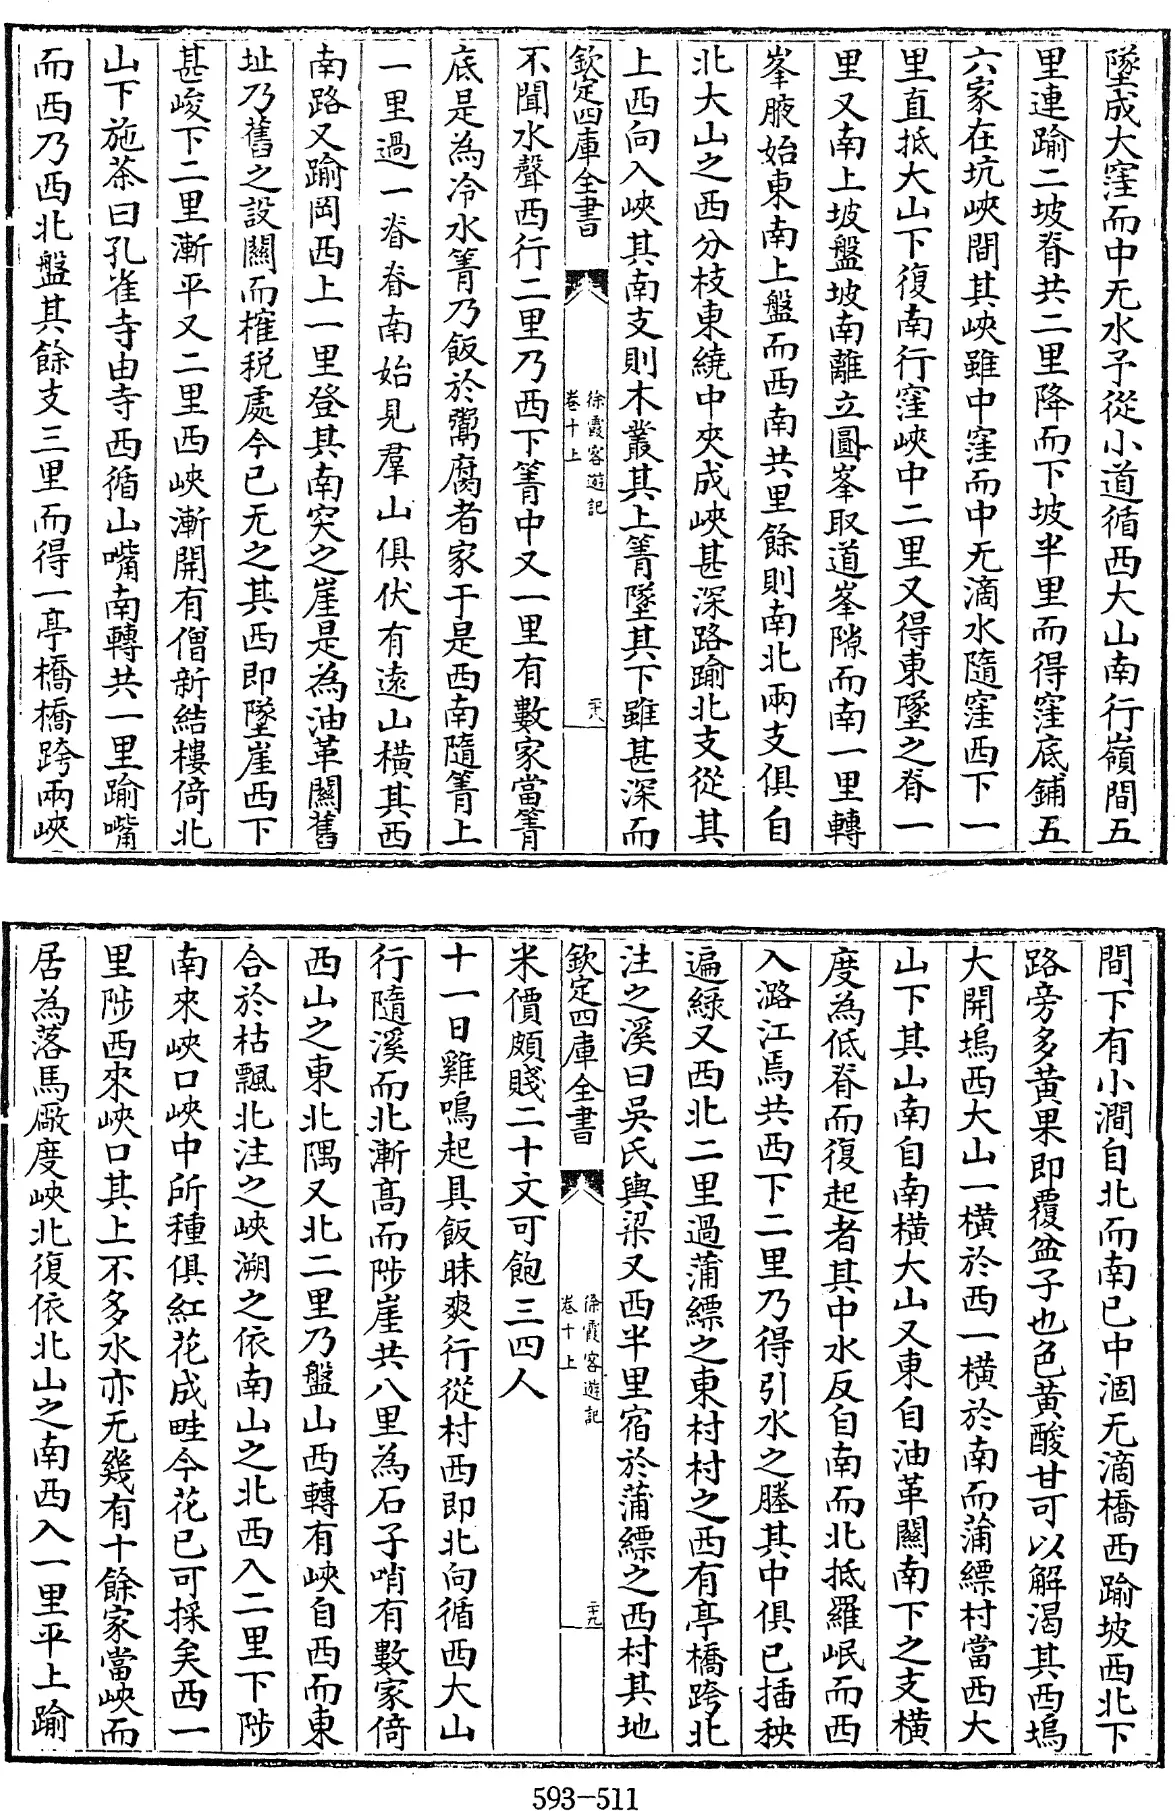 墜成大窪而中无水予從小道循西大山南行嶺間五
里連踰二坡脊共二里降而下坡半里而得窪底鋪五
六家在坑峽間其峽雖中窪而中无滴水隨窪西下一
里直抵大山下復南行窪峽中二里又得東墜之脊一
里又南上坡盤坡南離立圓峯取道峯隙而南一里轉
峯腋始東南上盤而西南共里餘則南北兩支俱自
北大山之西分枝東繞中夾成峽甚深路踰北支從其
上西向入峽其南支則木叢其上箐墜其下雖甚深而
欽定四庫全書
徐霞客遊記
卷十上
二十八
不聞水聲西行二里乃西下箐中又一里有數家當箐
底是為冷水箐乃飯於鬻腐者家于是西南隨箐上
一里過一脊脊南始見羣山俱伏有遠山橫其西
南路又踰岡西上一里登其南突之崖是為油革關舊
址乃舊之設關而榷税處今已无之其西即墜崖西下
甚峻下二里漸平又二里西峽漸開有僧新結樓倚北
山下施茶曰孔雀寺由寺西循山嘴南轉共一里踰嘴
而西乃西北盤其餘支三里而得一亭橋橋跨兩峽
間下有小澗自北而南已中涸无滴橋西踰坡西北下
路旁多黄果即覆盆子也色黄酸甘可以解渴其西塢
大開塢西大山一橫於西一橫於南而蒲縹村當西大
山下其山南自南橫大山又東自油革關南下之支橫
度為低脊而復起者其中水反自南而北抵羅岷而西
入潞江焉共西下二里乃得引水之塍其中俱已插秧
遍緑又西北二里過蒲縹之東村村之西有亭橋跨北
注之溪曰吳氏輿梁又西半里宿於蒲縹之西村其地
欽定四庫全書
徐霞客遊記
卷十上
二十九
米價頗賤二十文可飽三四人
十一日雞鳴起具飯昧爽行從村西即北向循西大山
行隨溪而北漸高而陟崖共八里為石子哨有數家倚
西山之東北隅又北二里乃盤山西轉有峽自西而東
合於枯飄北注之峽溯之依南山之北西入二里下陟
南來峽口峽中所種俱紅花成畦今花已可採矣西一
里陟西來峽口其上不多水亦无幾有十餘家當峽而
居為落馬廠度峽北復依北山之南西入一里平上踰
593-511